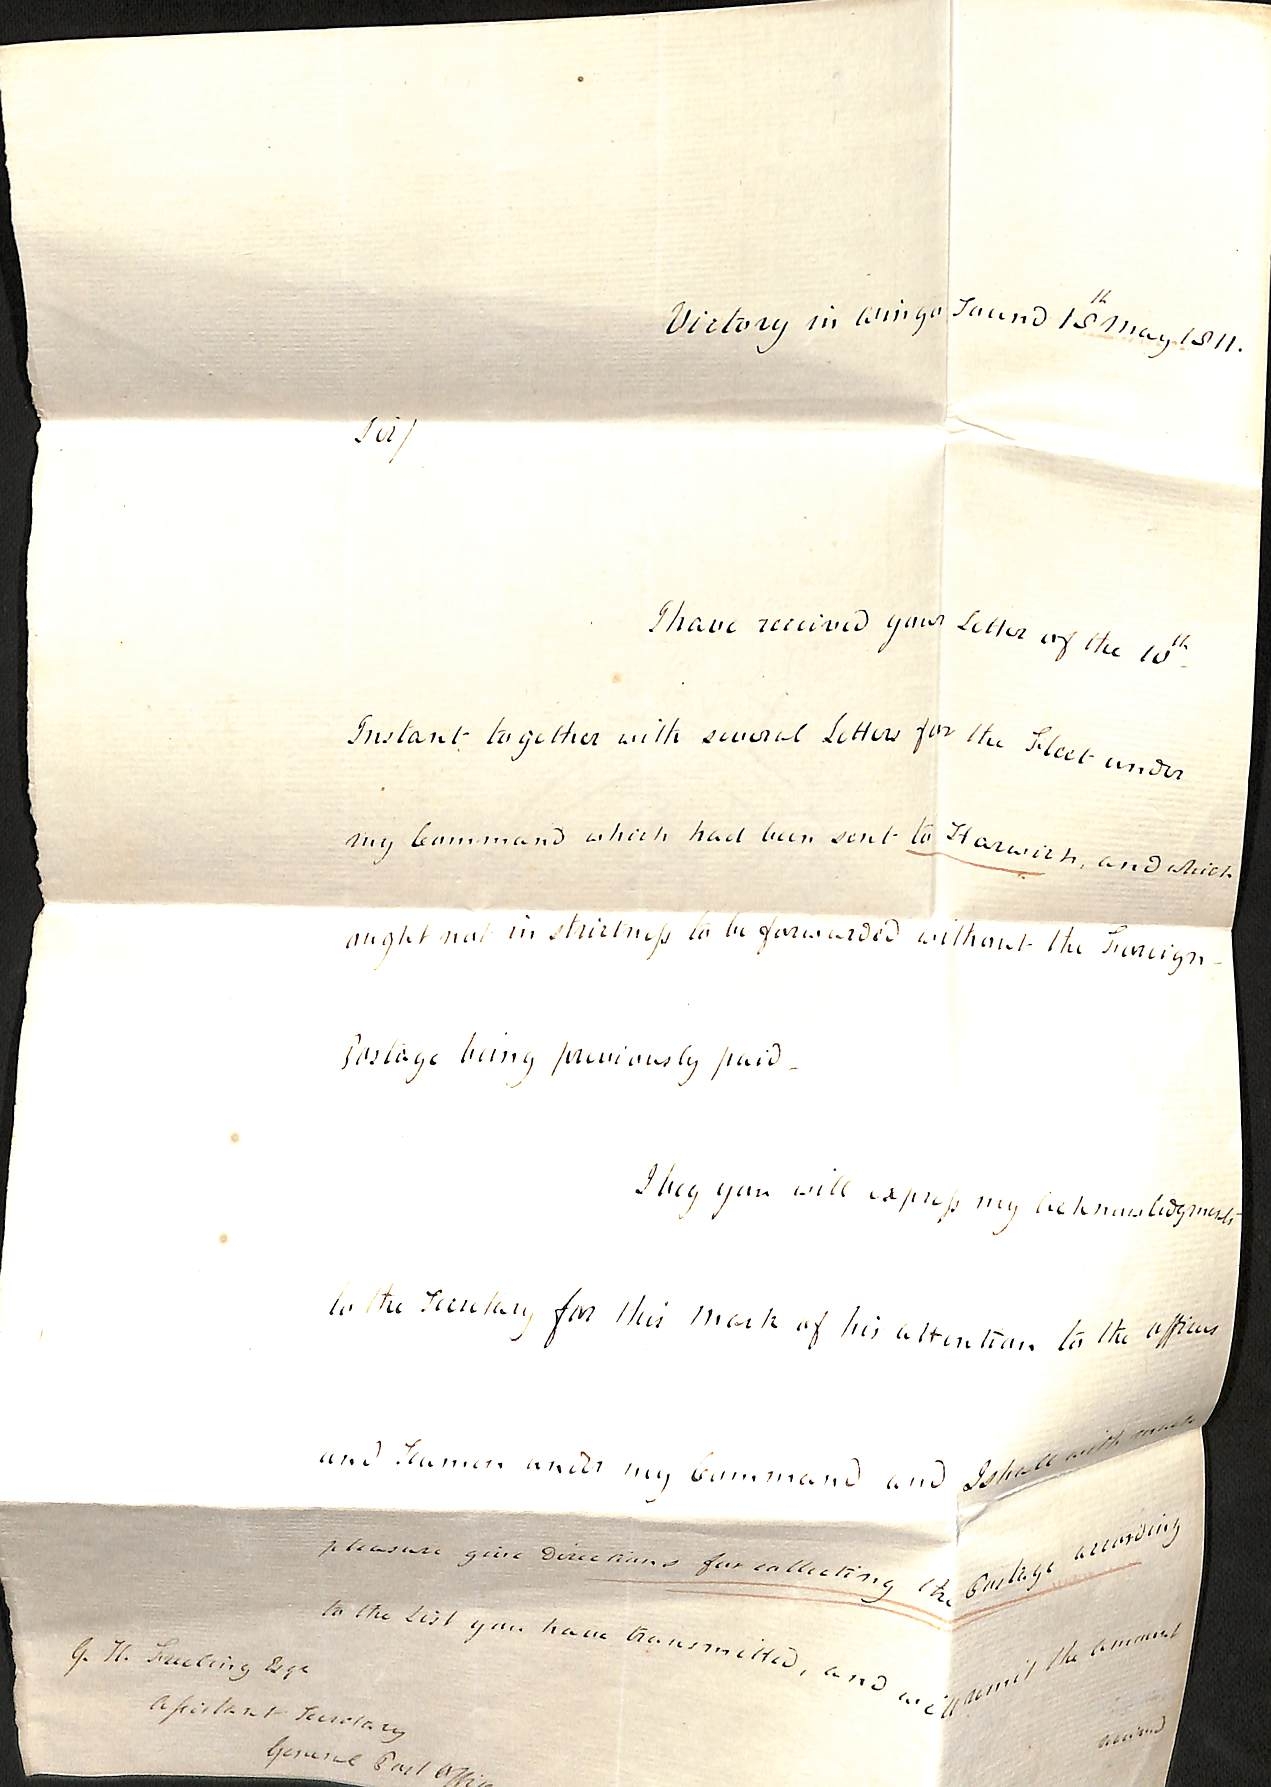 Victory in Wingo Sound 18th May 1811.
Sir/
I have received your Letter of the 10th
Instant together with several Letters for the Fleet under
my Command which had been sent to Harwich, and which
ought not in strictness to be forwarded without the Foreign
Postage being previously paid_
I beg you will express my Acknowledgments
to the Secretary for this mark of his attention to the officers
and Seamen under my Command and I shall with much
pleasure give directions for collecting the Postage according
to the List you have transmitted, and will remit the amount
received
G. H. Freeling Esqr
Assistant Secretary
General Post Office